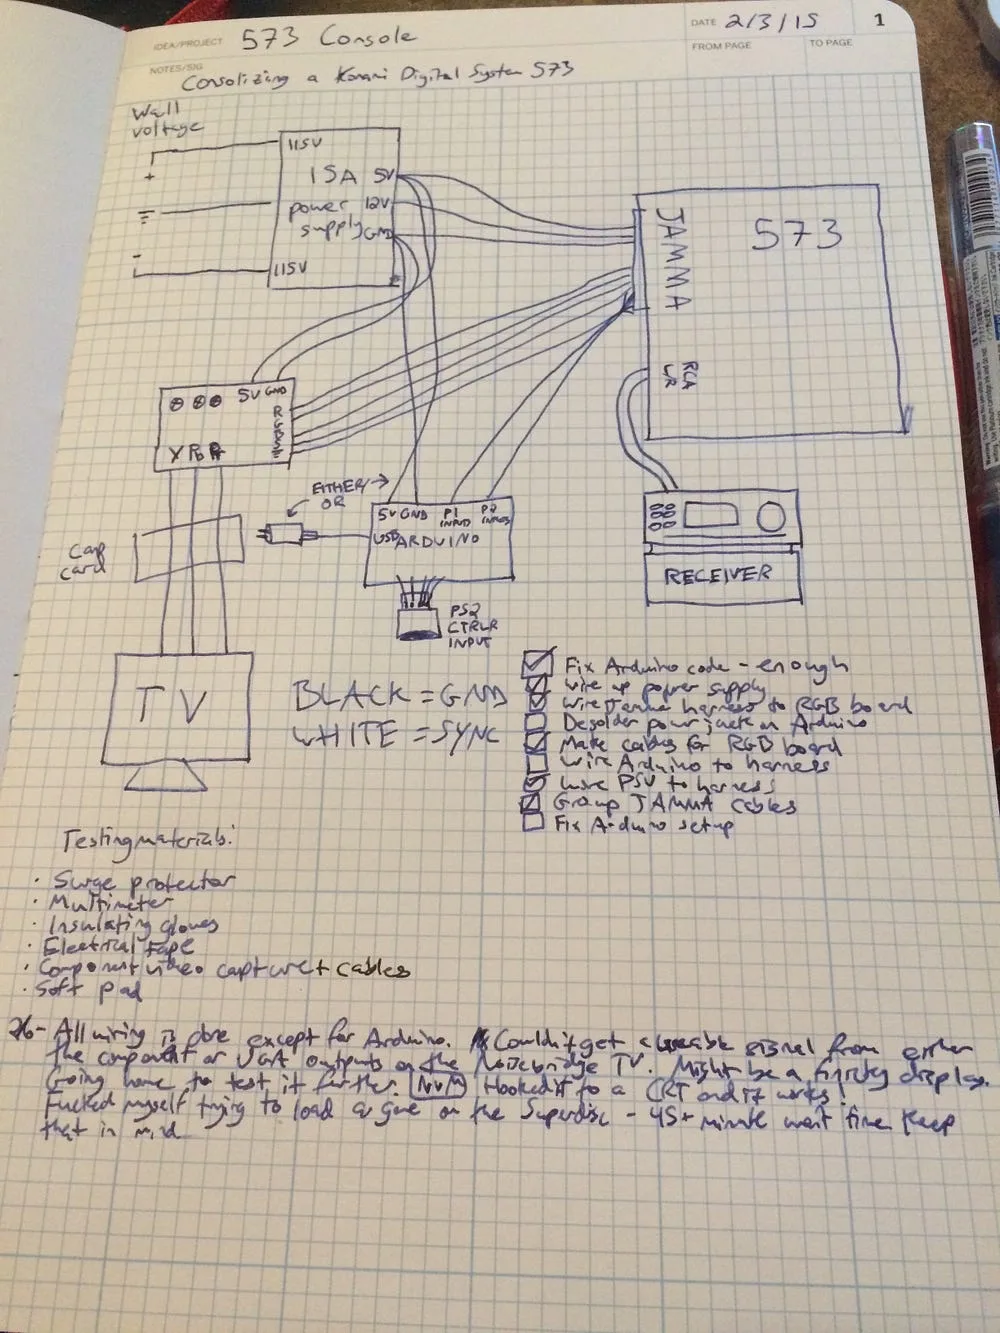 IDEA/PROJECT 573 Console
DATE 2/3/15
1
FROM PAGE
TO PAGE
NOTES/SIG
Consolizing a Konami Digital System 573
Wall
voltage
+
-
115V
15A 5V
power 12V
supply GND
115V
JAMMA
573
RCA
LR
5V GND
R
G
B
S
Y Pb Pr
EITHER/
OR
5V GND P1 INPUTS P2 INPUTS
USB ARDUINO
PS2
CTRLR
INPUT
Cap
card
TV
RECEIVER
BLACK = GND
WHITE = SYNC
Fix Arduino code - enough
Wire up power supply
Wire Jamma harness to RGB board
Desolder power jack on Arduino
Make cables for RGB board
Wire Arduino to harness
Wire PSU to harness
Group JAMMA cables
Fix Arduino setup
Testing materials:
· Surge protector
· Multimeter
· Insulating gloves
· Electrical tape
· Component video capture + cables
· Soft pad
2/6 - All wiring is done except for Arduino. Couldn't get a useable signal from either
the component or VGA outputs on the Noisebridge TV. Might be a finicky display.
Going home to test it further. NVM Hooked it to a CRT and it works!
Fucked myself trying to load a game on the Superdisc - 45+ minute wait time. Keep
that in mind